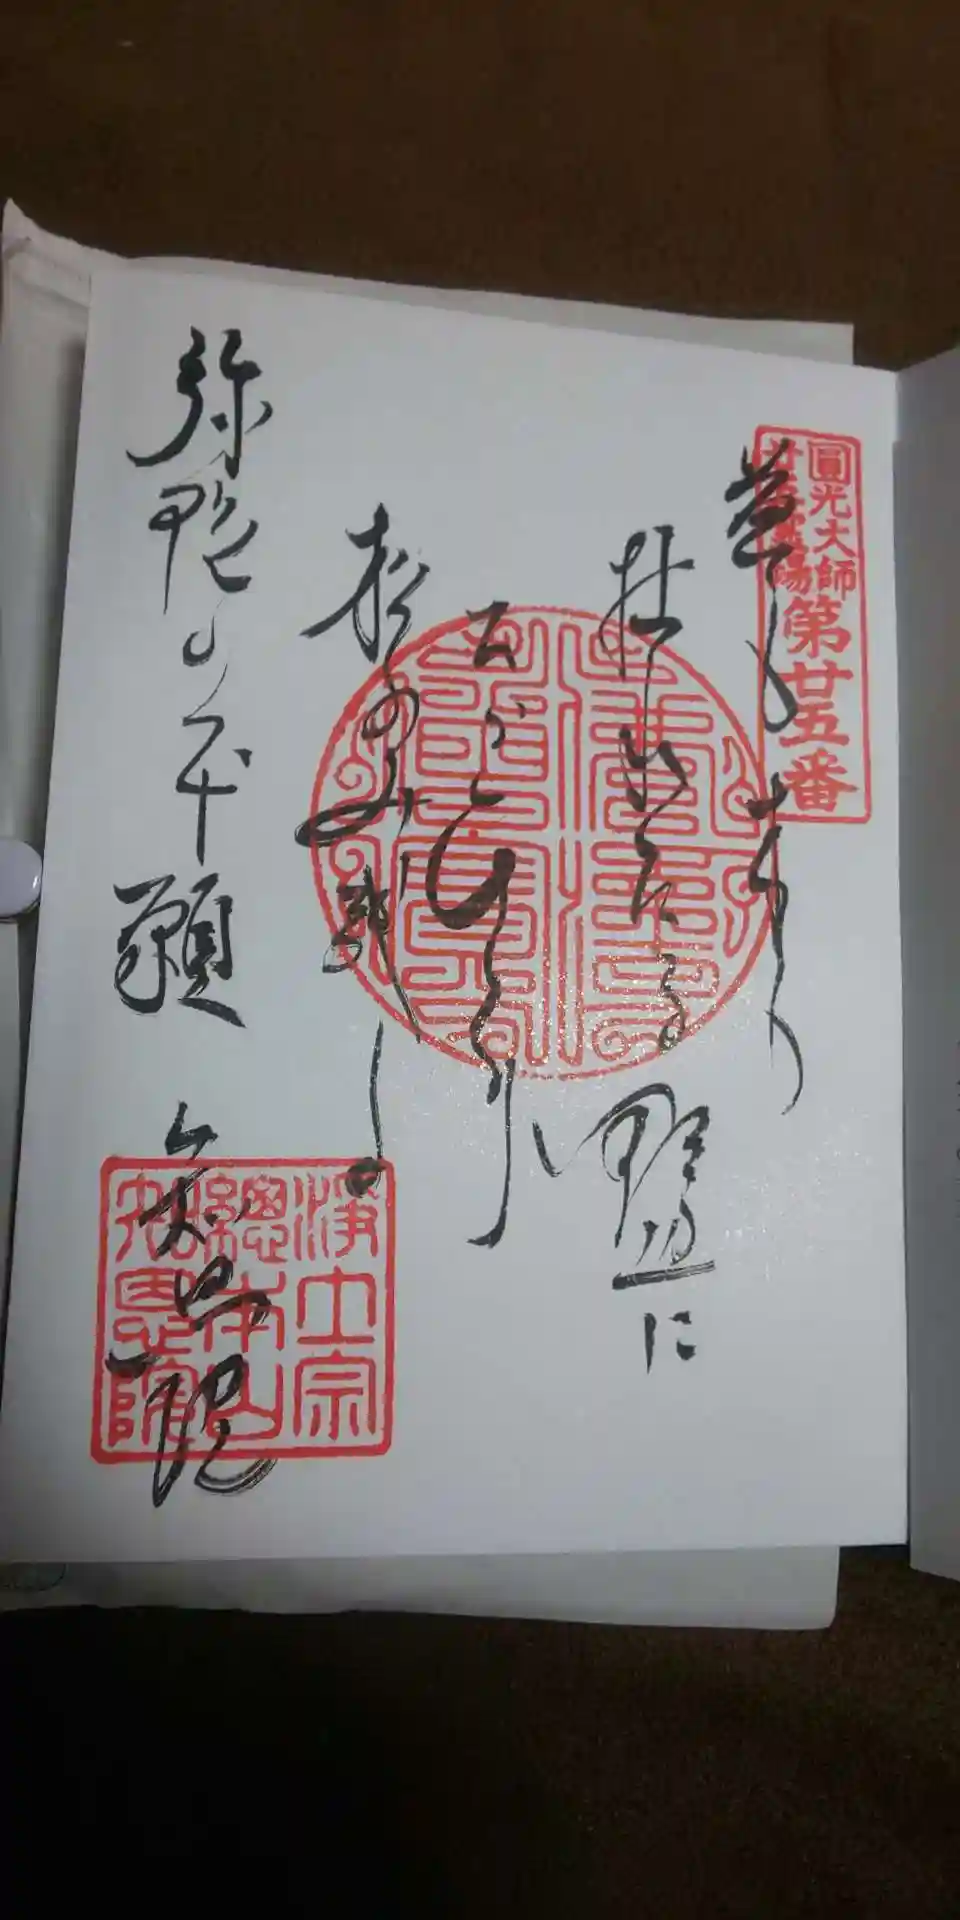 圓光大師
廿五霊場
第廿五番
草も木も
枯れたる野辺に
ただひとり
松のみ残る
弥陀の本願 知恩院
浄土宗
總本山
知恩院